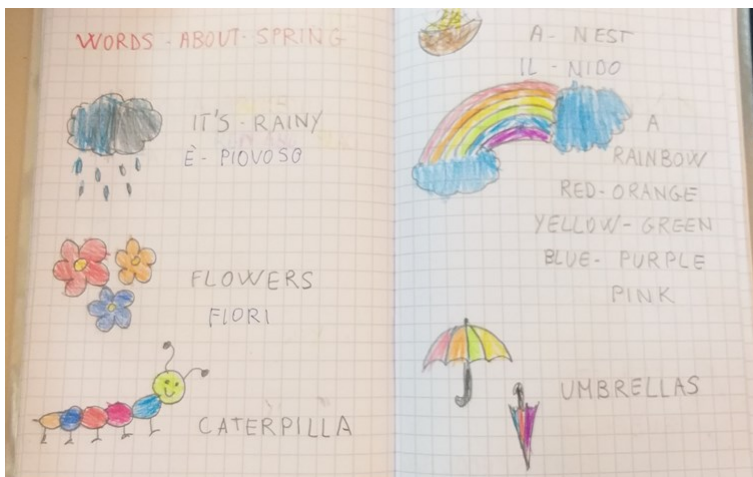 WORDS - ABOUT - SPRING
IT'S - RAINY
È - PIOVOSO
FLOWERS
FIORI
CATERPILLA
A - NEST
IL - NIDO
A
RAINBOW
RED - ORANGE
YELLOW - GREEN
BLUE - PURPLE
PINK
UMBRELLAS